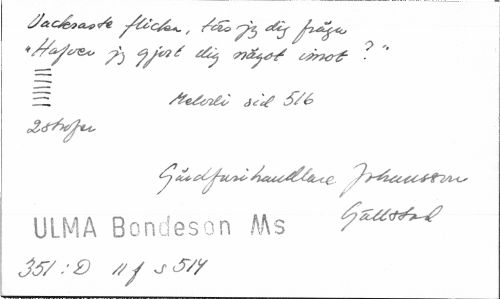 Vackraste flicka, törs jg dig fråga
"Hafver jg gjort dig något imot?"
Melodi sid 516
2 strofer
Gårdfarihandlare Johansson
Gällstad
ULMA Bondeson Ms
351:D 11 f s 514